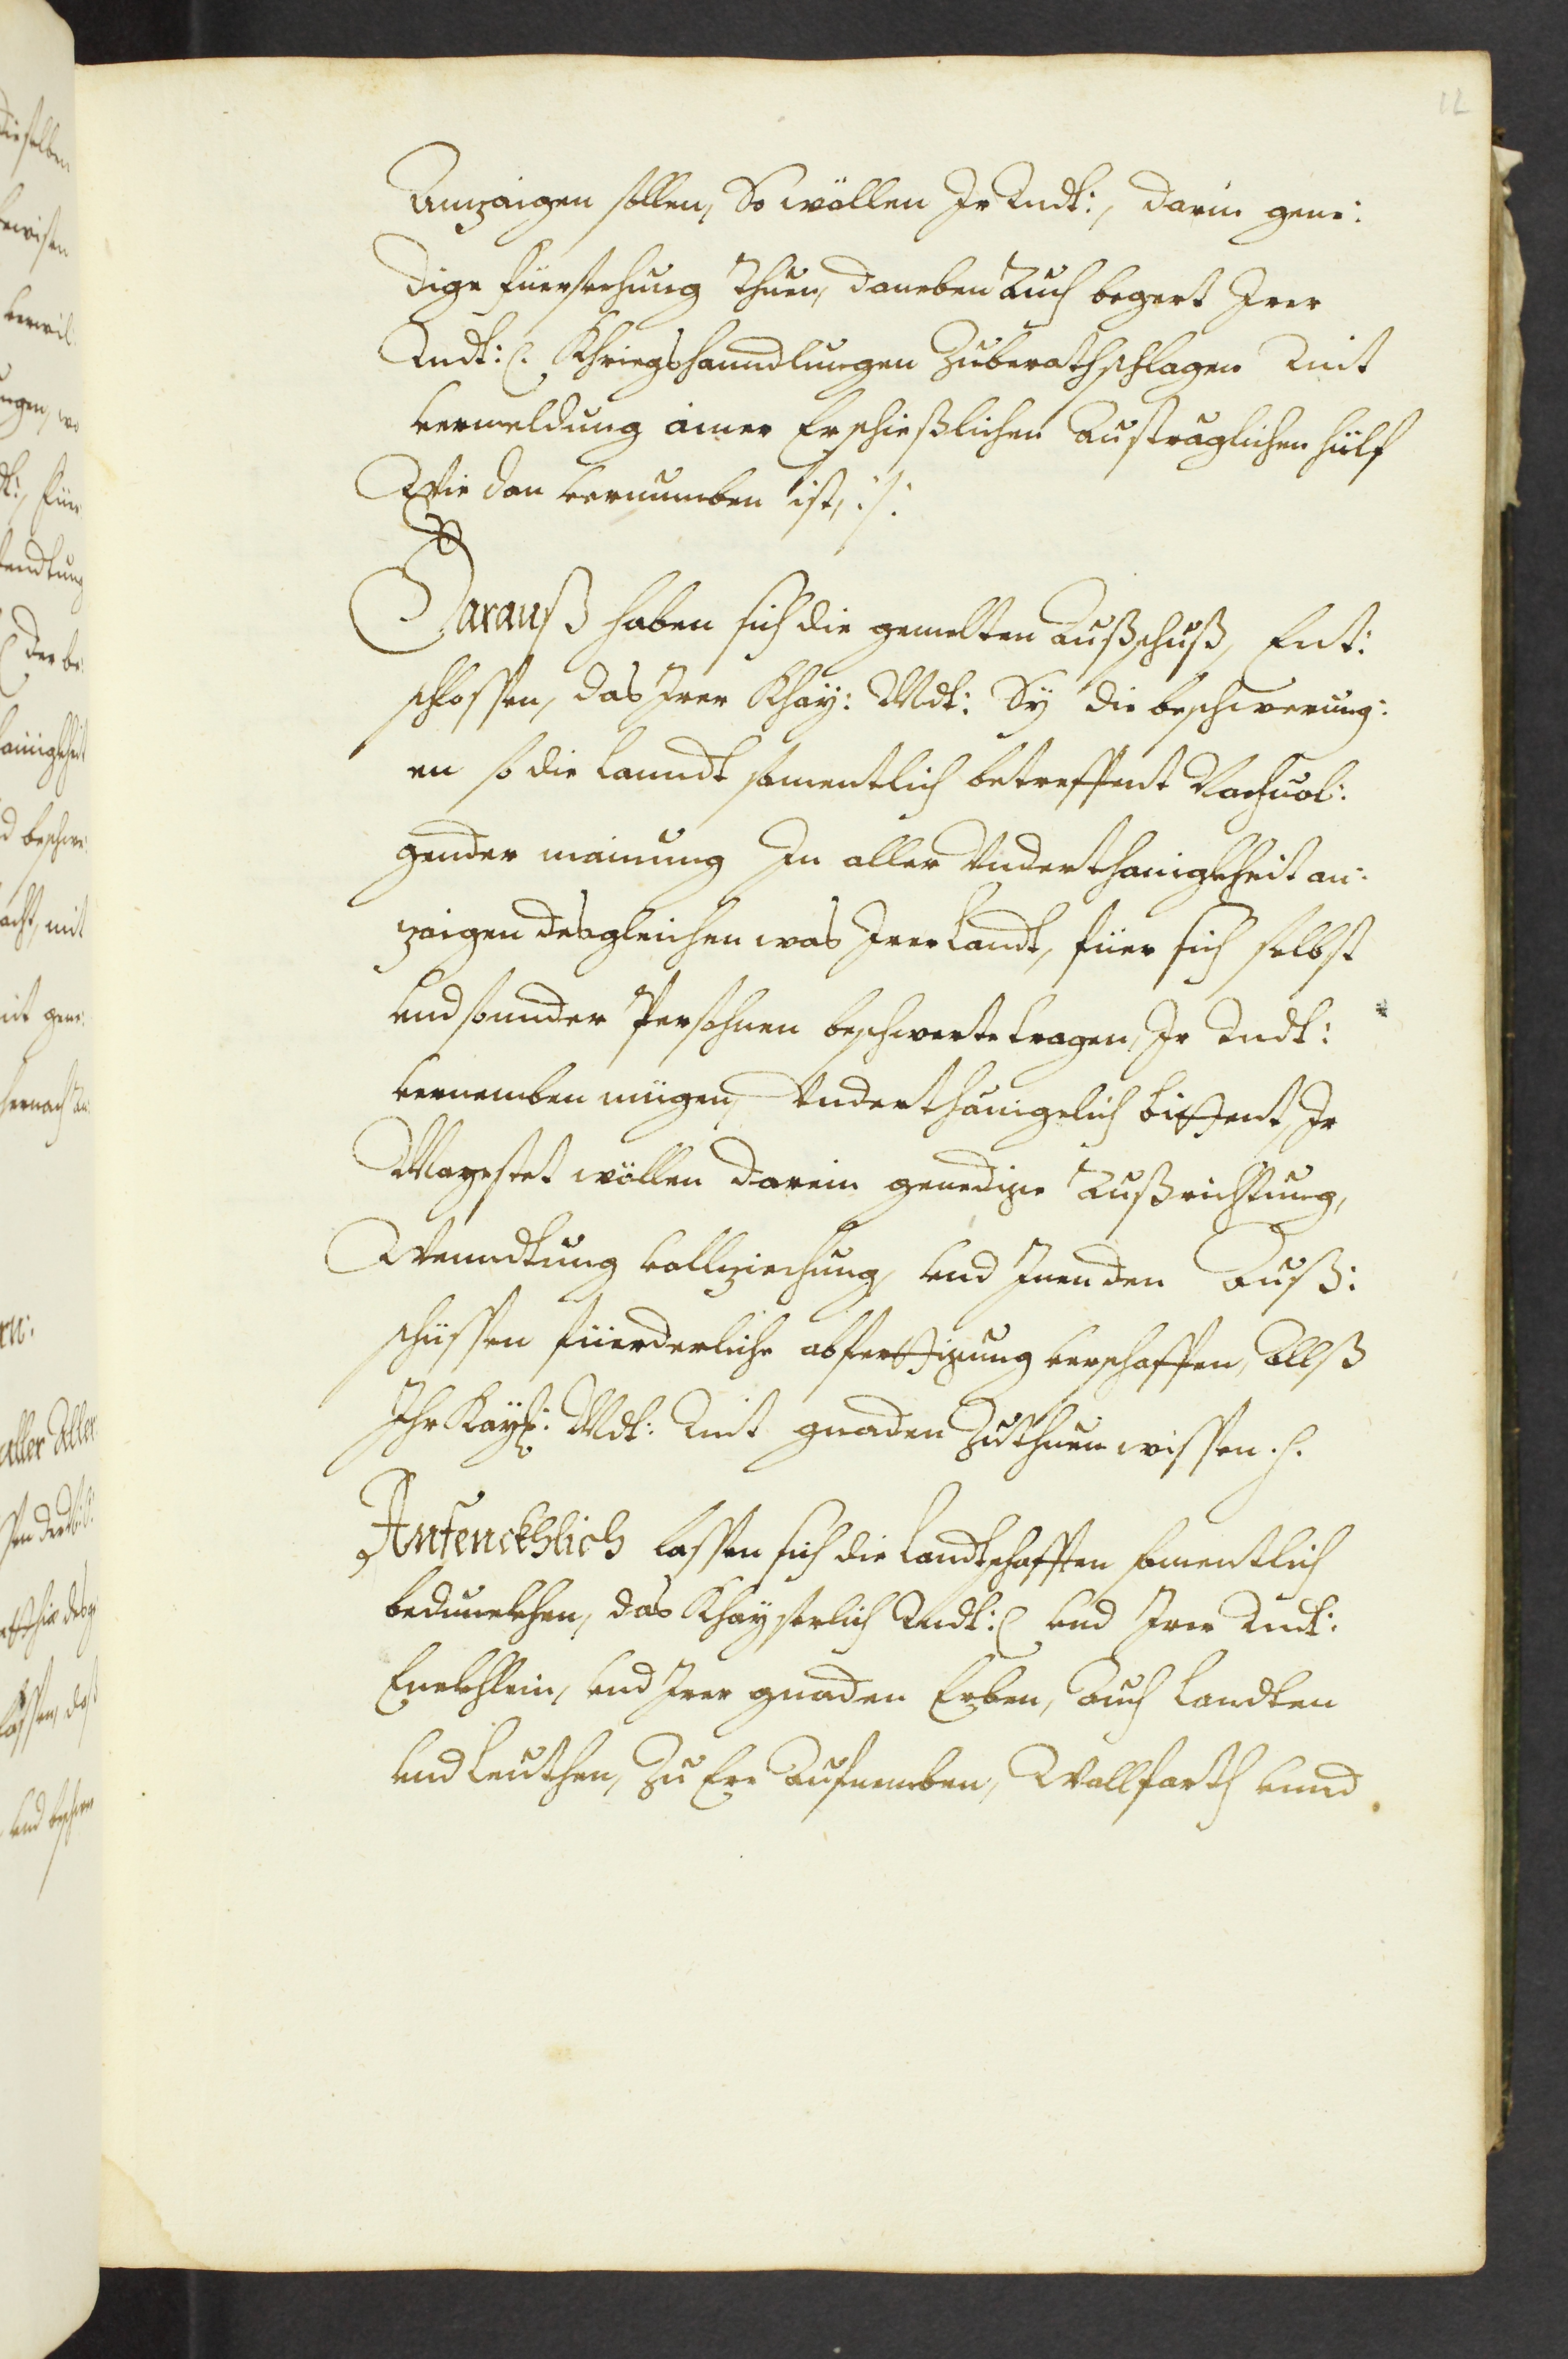 12
Anzaigen sollen, So wöllen Ir Mdt:, darin gene:
dige fürsehung Thuen, daneben Auch begert Irer
Mdt: Khriegshanndlungen zuberathschlagen Mit
vermeldung ainer Erschießlichen Austräglichen hülf
Wie dan vernumben ist, ./.
Darauß haben sich die gemelten Außschuß, Ent:
schlossen, das Irer Khay: Mdt: Sy die beschwerung:
en so die Lanndt samentlich betreffent Nachuol:
gender mainung In aller Vnderthanigkheit an:
zaigen desgleichen was Irer Landt, füer sich selbst
vnd sonnder Persohnen beschwerte tragen, Ir Mdt:
vernemben mügen, Vnderthänigelich bittent, Ir
Mayestet wöllen darein genedige Außrichtung,
Wenndtung vollziechung, vnd Inen den Auß:
schüssen fürderliche abferttigung verschaffen, Allß
Ihr Kayß: Mdt: Mit gnaden zuthuen wissen.
Anfenckhlich lassen sich die Landtschafften samentlich
bedunckhen, das Khayserlich Mdt: vnd Irer Mdt:
Enickhlein, vnd Irer gnaden Erben, Auch Landten
vnd Leuthen, zu Ere Aufnemben, Wollfarth vnnd